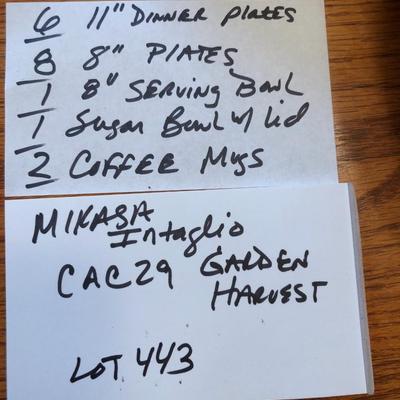 6 11" DINNER PLATES
8 8" PLATES
1 8" SERVING BOWL
1 Sugar Bowl w/ Lid
2 COFFEE Mugs
MIKASA
Intaglio
CAC29 GARDEN
HARVEST
LOT 443